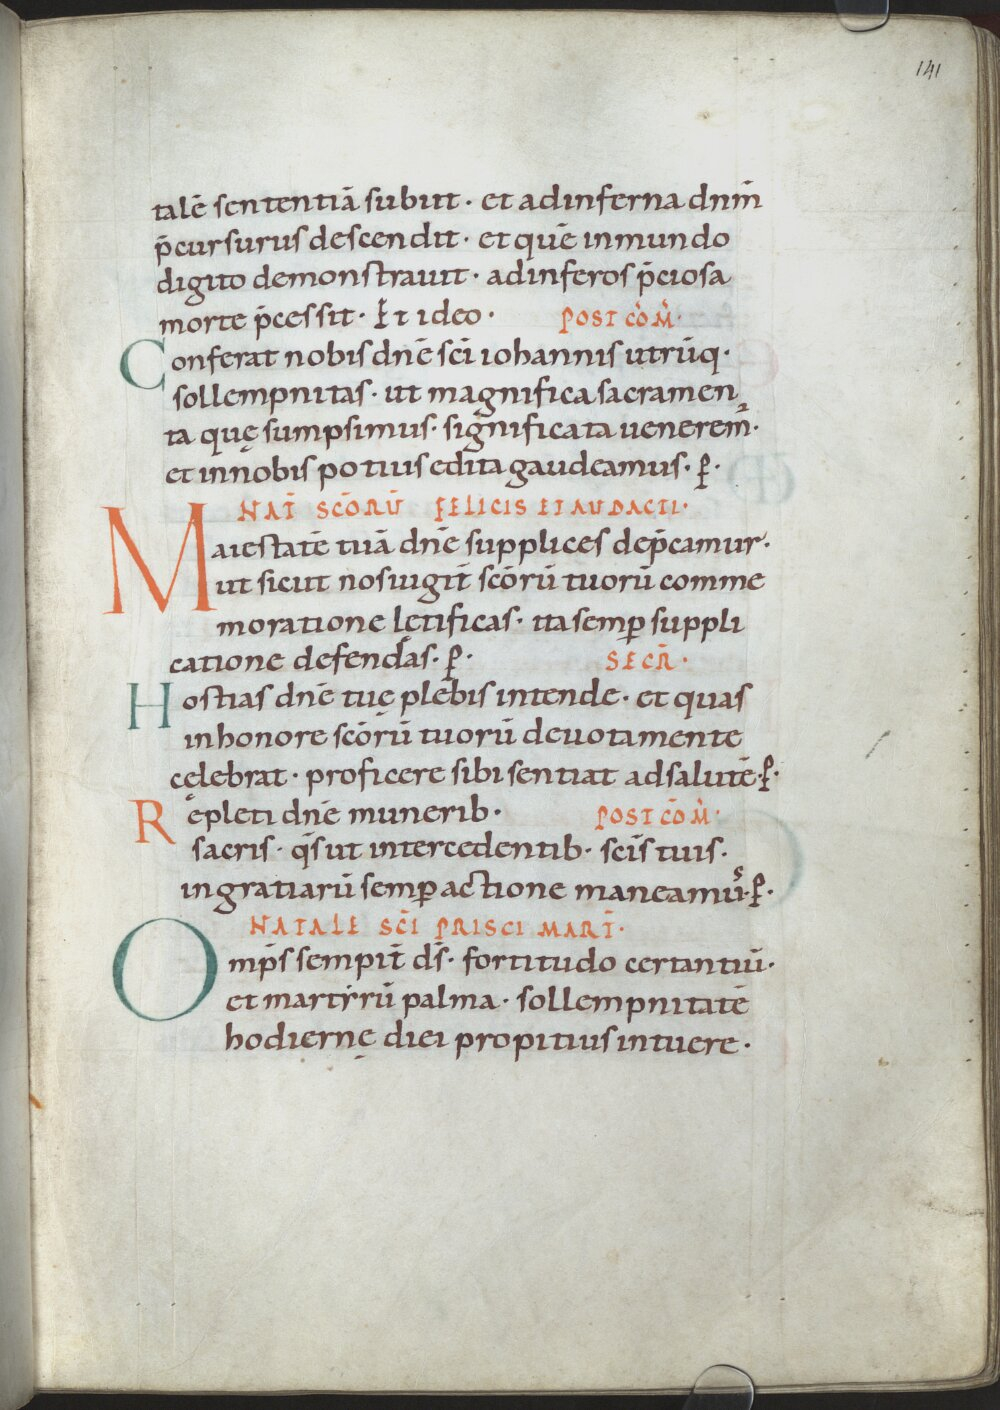 141
talē sententiā subiit · et ad inferna dnm̄
p̄cursurus descendit · et quē in mundo
digito demonstrauit · ad inferos p̄ciosa
morte p̄cessit · Et ideo ·
POST CŌM̄ ·
Conferat nobis dnē sc̄i iohannis utrūq ·
sollempnitas · ut magnifica sacramen
ta quę sumpsimus · significata uenerem̄ ·
et in nobis potius edita gaudeamus · P ·
NAT̄ SCŌRŪ FELICIS ET AUDACTI ·
Maiestatē tuā dnē supplices dep̄camur ·
ut sicut nos iugit̄ scōrū tuorū comme
moratione lętificas · ita semꝑ suppli
catione defendas · P ·
SECR̄ ·
Hostias dnē tuę plebis intende · et quas
in honore scōrū tuorū deuota mente
cęlebrat · proficere sibi sentiat ad salutē · P ·
Repleti dnē munerib ·
POST CŌM̄ ·
sacris · q̄s ut intercedentib · sc̄is tuis ·
in gratiarū semꝑ actione maneamus̄ · P ·
NATALE SC̄I PRISCI MART̄ ·
Omp̄s sempit̄ d̄s · fortitudo certantiū ·
et martyrū palma · sollempnitatē
hodiernę diei propitius intuere ·